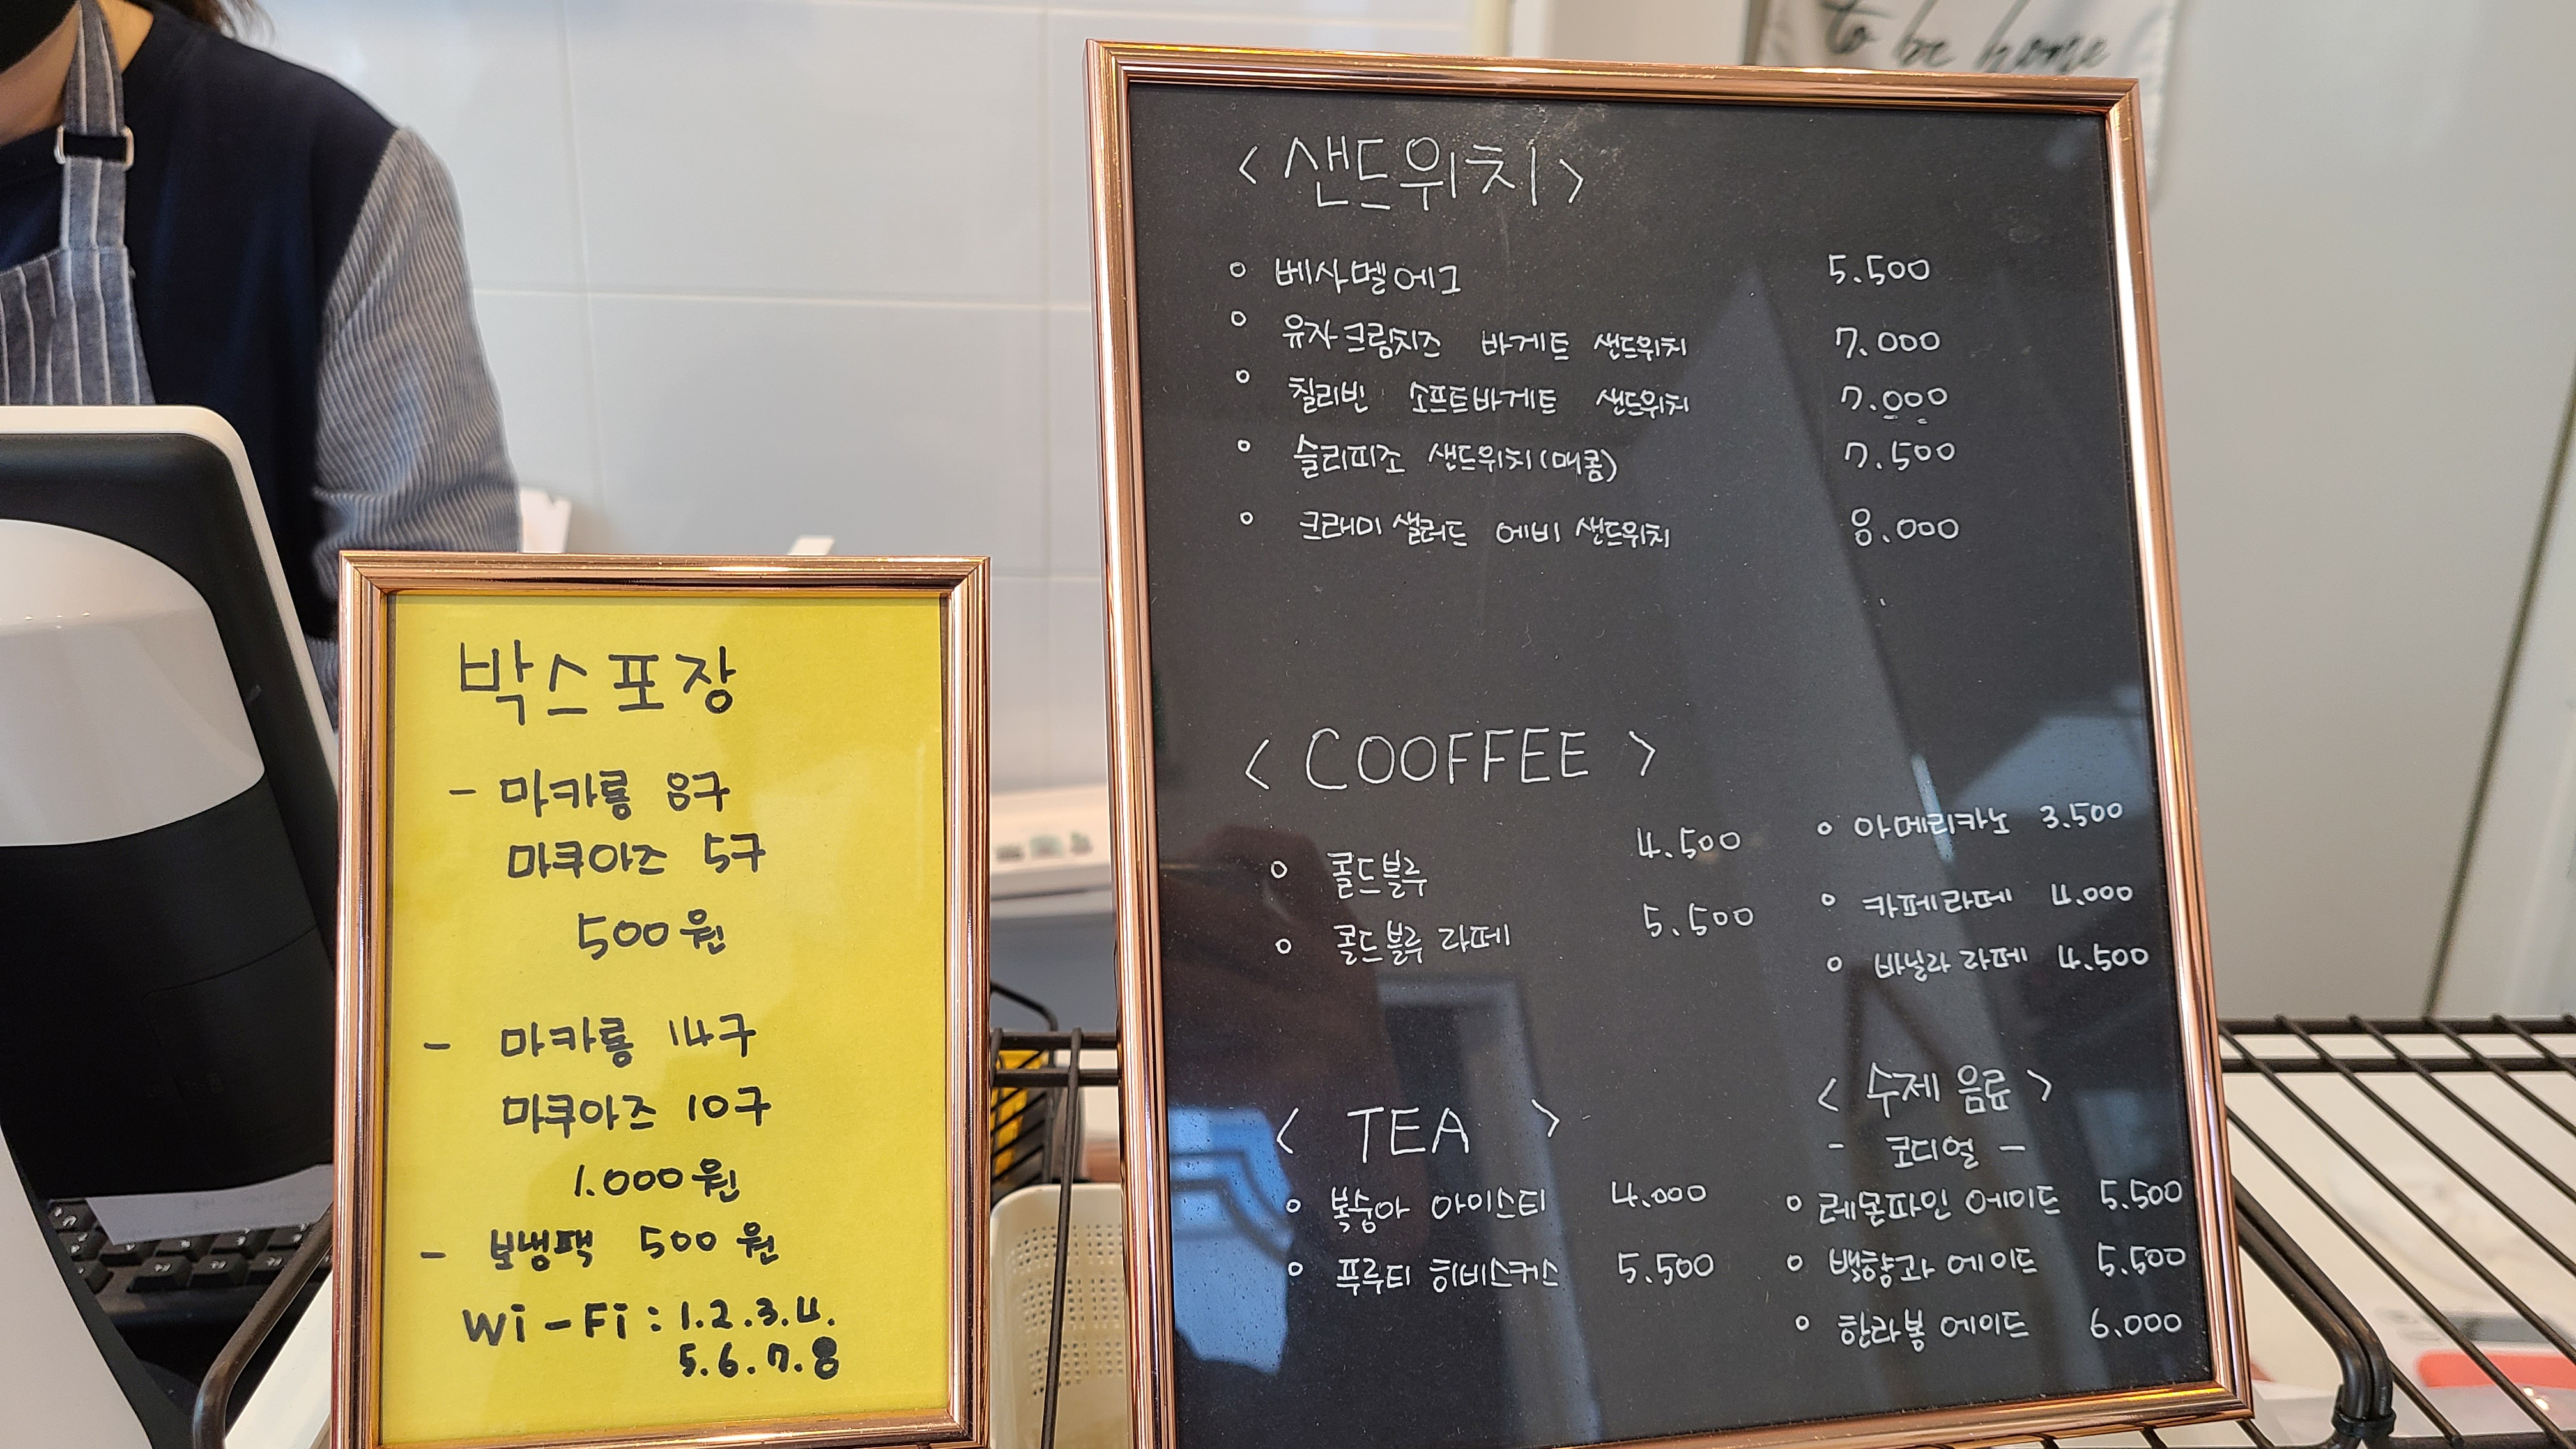 to be home
< 샌드위치 >
◦ 베샤멜에그 5.500
◦ 유자크림치즈 바게트 샌드위치 7.000
◦ 칠리빈 소프트바게트 샌드위치 7.000
◦ 슬리피조 샌드위치(매콤) 7.500
◦ 크래미 샐러드 에비 샌드위치 8.000
< COOFFEE >
◦ 콜드블루 4.500
◦ 콜드블루 라떼 5.500
◦ 아메리카노 3.500
◦ 카페라떼 4.000
◦ 바닐라 라떼 4.500
< TEA >
◦ 복숭아 아이스티 4.000
◦ 푸루티 히비스커스 5.500
< 수제 음료 >
- 코디얼 -
◦ 레몬파인 에이드 5.500
◦ 백향과 에이드 5.500
◦ 한라봉 에이드 6.000
박스포장
- 마카롱 8구
마쿠아즈 5구
500원
- 마카롱 14구
마쿠아즈 10구
1.000원
- 보냉팩 500원
Wi-Fi : 1.2.3.4.
5.6.7.8